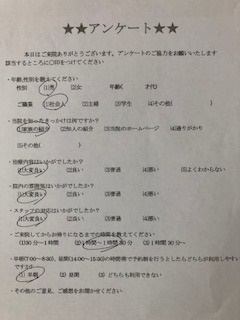 ★★アンケート★★
本日はご来院ありがとうございます。アンケートのご協力をお願いいたします
該当するところに○印をつけてください
・年齢,性別を教えてください
性別 (1)男 (2)女 年齢( 才代)
ご職業 (1)社会人 (2)主婦 (3)学生 (4)その他( )
・当院を知ったきっかけは何ですか?
(1)家族の紹介 (2)知人の紹介 (3)当院のホームページ (4)通りがかり
(5)その他( )
・治療内容はいかがでしたか?
(1)大変良い (2)良い (3)普通 (4)悪い (5)よくわからない
・院内の雰囲気はいかがでしたか?
(1)大変良い (2)良い (3)普通 (4)悪い
・スタッフの対応はいかがでしたか?
(1)大変良い (2)良い (3)普通 (4)悪い
・ご来院してからお帰りになるまでの時間を教えてください
(1)30分~1時間 (2)1時間~1時間30分 (3)1時間30分~
・早朝(7:00~8:30)、昼間(14:00~15:30)の時間帯で予約制を行うとしたらどちらが利用しやすい
ですか?
(1) 早朝 (2) 昼間 (3) どちらも利用できない
・その他のご意見、ご感想をお聞かせください